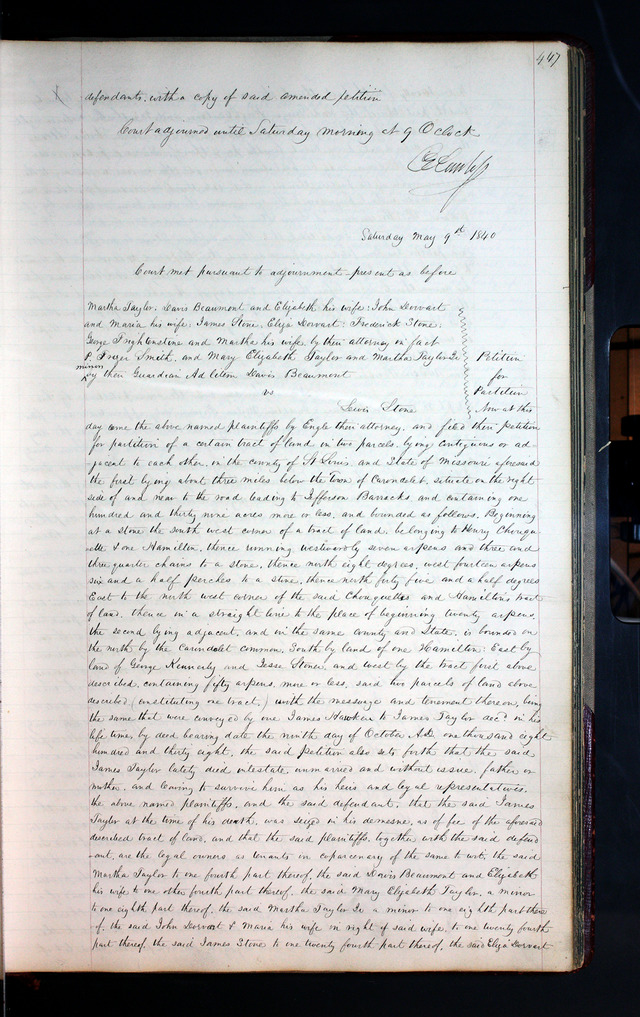 447
defendants, with a copy of said amended petition
Court adjourned until Saturday morning at 9 O'clock
Saturday May 9th 1840
Court met pursuant to adjournment present as before
Martha Taylor; Davis Beaumont and Elizabeth his wife; John Dorvart
and Maria his wife; James Stone; Eliza Dorvart; Frederick Stone;
George Frightenstine and Martha his wife by their attorney in fact
P. Frazer Smith, and Mary Elizabeth Taylor and Martha Taylor Jr Petition
minor
by their Guardian Ad Letem Davis Beaumont for
vs Partition
Lewis Stone Now at this
day come the above named plaintiffs by Engle their attorney, and filed their petition
for partition of a certain tract of land in two parcels, lying contiguous or ad-
jacent to each other, in the county of St Louis, and State of Missouri aforesaid
the first lying about three miles below the Town of Carondelet, situate on the right
side of and near to the road leading to Jefferson Barracks, and containing one
hundred and thirty nine acres more or less, and bounded as follows, Beginning
at a stone the south west corner of a tract of land, belonging to Henry Chouqu
ette & one Hamilton, thence running westwardly seven arpens and three and
three quarter chains to a stone, thence north eight degrees, west fourteen arpens
six and a half perches to a stone, thence north forty five and a half degrees
East to the north west corner of the said Chouquettes and Hamiltons tract
of land, thence in a straight line to the place of beginning twenty arpens,
the second lying adjacent, and in the same county and State, is bounded on
the north by the Carondelet common, South by land of one Hamilton: East by
land of George Kennerly and Jesse Stones, and west by the tract first above
described, containing fifty arpens, more or less, said two parcels of land above
described (constituting one tract,) with the message and tenement thereon, being
the same that were conveyed by one James Hawken to James Taylor decd in his
life time, by deed bearing date the ninth day of October A.D. one thousand eight
hundred and thirty eight, the said Petition also sets forth that the said
James Taylor lately died intestate, unmarried and without issue, father or
mother, and leaving to survive him as his heirs and legal representatives,
the above named plaintiffs, and the said defendant, that the said James
Taylor at the time of his death, was seized in his demesne, as of fee of the aforesaid
described tract of land, and that the said plaintiffs, together with the said defend
ant, are the legal owners as tenants in coparcenary of the same to wit, the said
Martha Taylor to one fourth part thereof, the said Davis Beaumont and Elizabeth
his wife to one other fourth part thereof, the said Mary Elizabeth Taylor, a minor
to one eighth part thereof, the said Martha Taylor Jr a minor to one eighth part there
of, the said John Dorvart & Maria his wife in right of said wife, to one twenty fourth
part thereof, the said James Stone to one twenty fourth part thereof, the said Eliza Dorvart